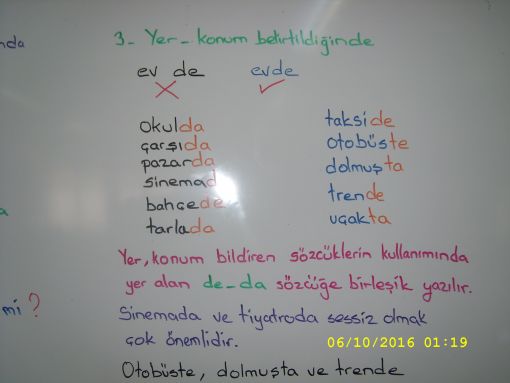 nda
3- Yer- konum belirtildiğinde
ev de evde
okulda
çarşıda
pazarda
sinemad
bahçede
tarlada
takside
otobüste
dolmuşta
trende
uçakta
a
Yer, konum bildiren sözcüklerin kullanımında
yer alan de-da sözcüğe birleşik yazılır.
mi ?
Sinemada ve tiyatroda sessiz olmak
çok önemlidir.
06/10/2016 01:19
Otobüste, dolmuşta ve trende